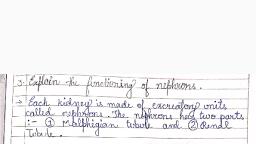 3. Explain the functioning of nephrons.
→ Each kidney is made of excreatory units
called nephrons. The nephrons has two parts
:- ① Malphigian tubule and ② Renal
Tubule.